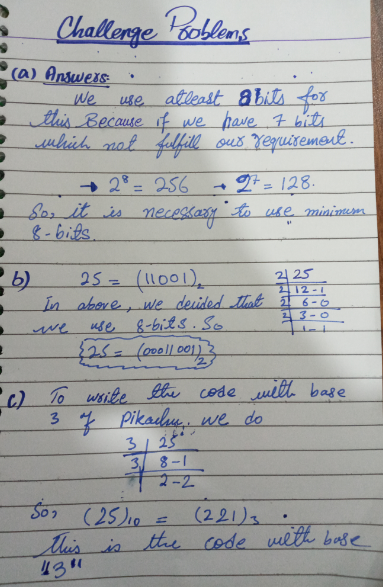 Challenge Problems
(a) Answers:
We use atleast 8bits for
this Because if we have 7 bits
which not fulfill our requirement.
→ 2⁸ = 256 → 2⁷ = 128.
So, it is necessary to use minimum
8-bits.
b) 25 = (11001)₂
In above, we decided that
we use 8-bits. So
{25 = (00011001)₂}
2 | 25
2 | 12-1
2 | 6-0
2 | 3-0
1-1
c) To write the code with base
3 of Pikachu, we do
3 | 25
3 | 8-1
2-2
So, (25)₁₀ = (221)₃.
This is the code with base
"3"